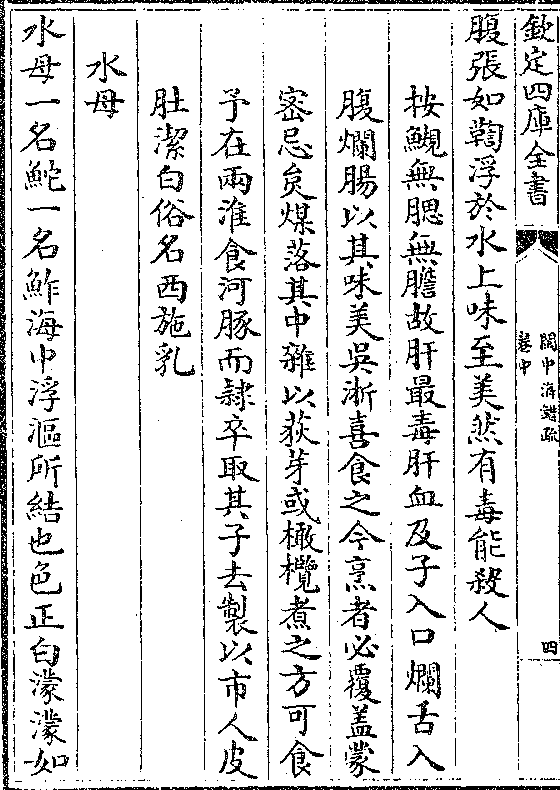 欽定四庫全書
閩中海錯疏
卷中
四
腹張如鞠浮於水上味至美然有毒能殺人
按鯢無腮無膽故肝最毒肝血及子入口爛舌入
腹爛腸以其味美吳浙喜食之今烹者必覆盖蒙
宻忌炱煤落其中雜以荻芽或橄欖煮之方可食
予在兩淮食河豚而隷卒取其子去製以市人皮
肚潔白俗名西施乳
水母
水母一名鮀一名鮓海中浮漚所結也色正白濛濛如